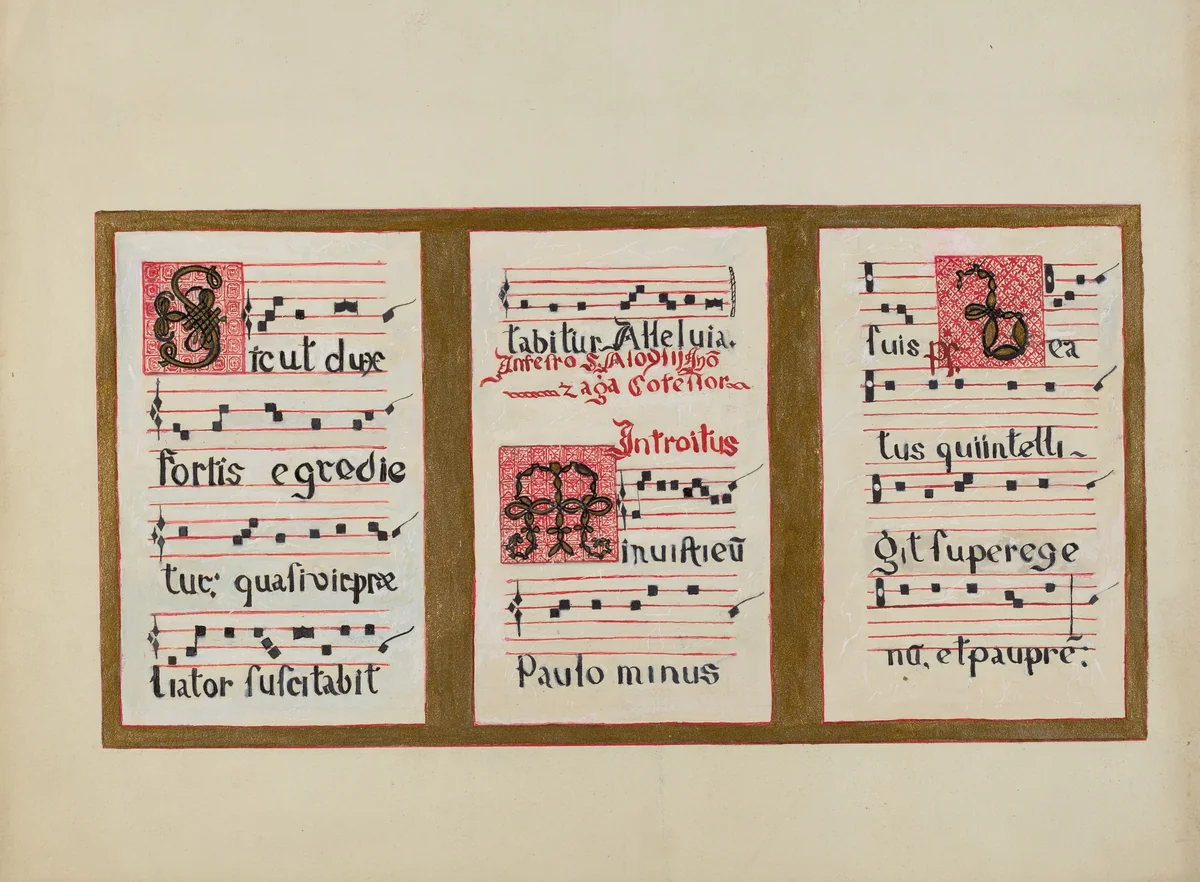 Sicut dux
fortis egredie
tur: quasi vir præ
liator suscitabit
tabitur Alleluia.
Infesto S. Aloysij Gõ
zaga Cofessor
Introitus
Minuisti eū
Paulo minus
suis ps. Bea
tus qui intelli~
git super ege
nū, et paupre: